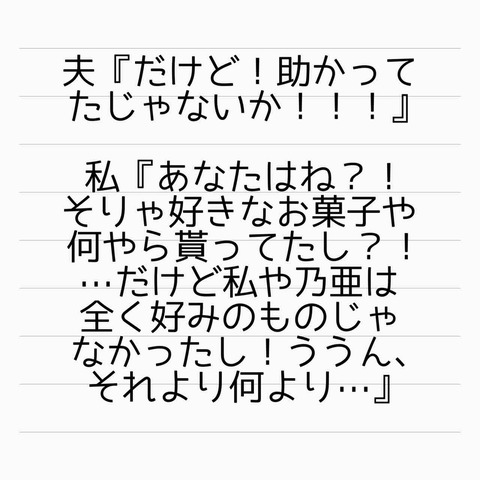 夫『だけど！助かって
たじゃないか！！！』
私『あなたはね？！
そりゃ好きなお菓子や
何やら貰ってたし？！
…だけど私や乃亜は
全く好みのものじゃ
なかったし！ううん、
それより何より…』